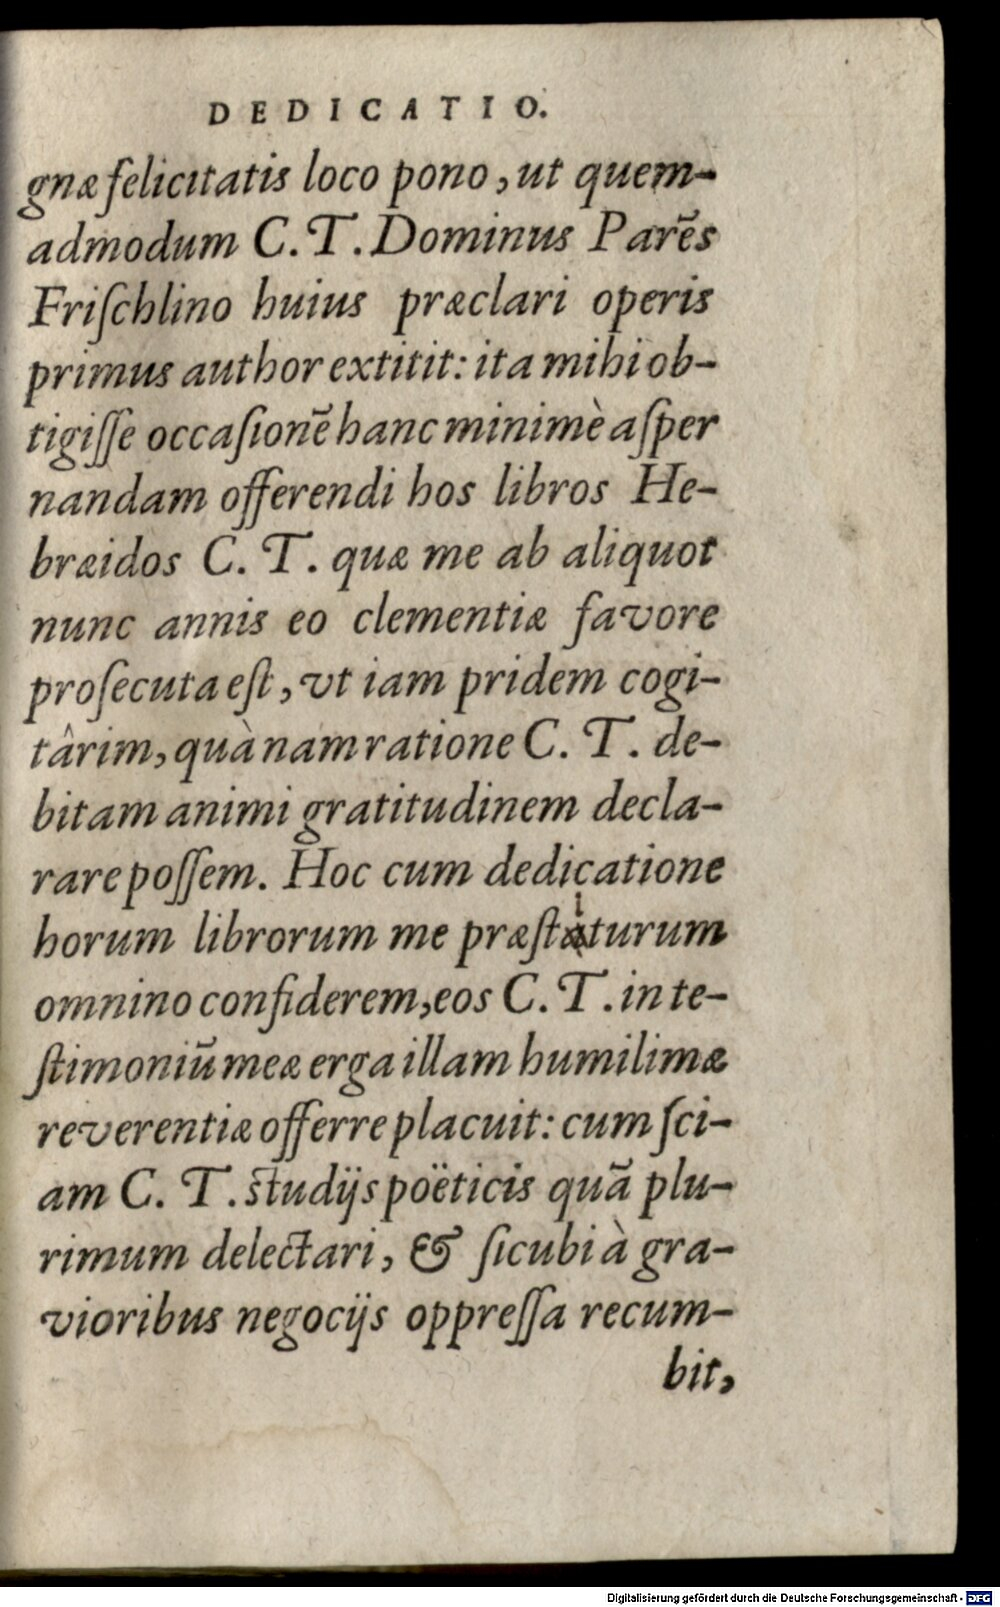 DEDICATIO.
gnæ felicitatis loco pono, ut quem-
admodum C. T. Dominus Parẽs
Friſchlino huius præclari operis
primus author extitit: ita mihi ob-
tigiſſe occaſionẽ hanc minimè aſper
nandam offerendi hos libros He-
bræidos C. T. quæ me ab aliquot
nunc annis eo clementiæ favore
proſecuta eſt, vt iam pridem cogi-
târim, quànam ratione C. T. de-
bitam animi gratitudinem decla-
rare poſſem. Hoc cum dedicatione
horum librorum me præſtiturum
omnino confiderem, eos C. T. in te-
ſtimoniũ meæ erga illam humilimæ
reverentiæ offerre placuit: cum ſci-
am C. T. ſtudijs poëticis quã plu-
rimum delectari, & ſicubi à gra-
vioribus negocijs oppreſſa recum-
bit,
Digitalisierung gefördert durch die Deutsche Forschungsgemeinschaft - DFG